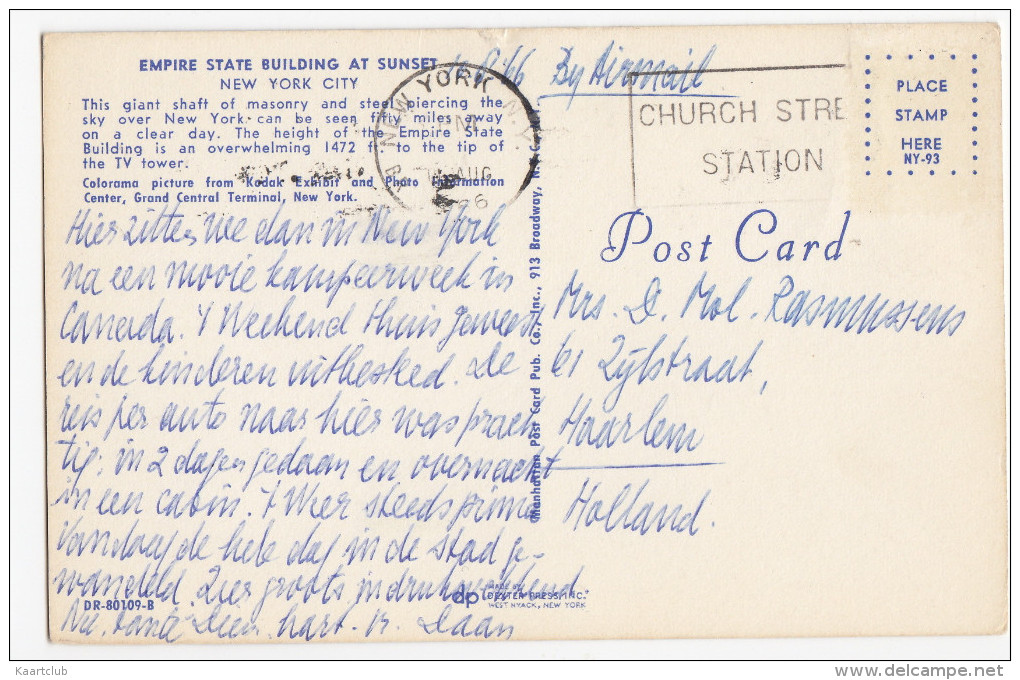 EMPIRE STATE BUILDING AT SUNSET
NEW YORK CITY
This giant shaft of masonry and steel piercing the
sky over New York can be seen fifty miles away
on a clear day. The height of the Empire State
Building is an overwhelming 1472 ft to the tip of
the TV tower.
Colorama picture from Kodak Exhibit and Photo Information
Center, Grand Central Terminal, New York.
By Airmail
NEW YORK, N.Y.
PM
AUG
CHURCH STRE
STATION
PLACE
STAMP
HERE
NY-93
Post Card
Hier zitten we dan in New York
na een mooie kampeerweek in
Canada. 't Weekend thuis geweest
en de kinderen uitbesteed. De
reis per auto naar hier was prach
tig: in 2 dagen gedaan en overnacht
in een cabin. 't Weer steeds prima
Vandaag de hele dag in de stad ge-
wandeld. Zeer groots, indrukwekkend
Tante Dien, hart. gr. Daan
Mrs. D. Mol. Rasmussens
61 Zylstraat,
Haarlem
Holland.
Manhattan Post Card Pub. Co., Inc., 913 Broadway, N.Y.C.
DR-80109-B
dp MADE BY
DEXTER PRESS, INC.
WEST NYACK, NEW YORK
Kaartclub
www.delcampe.net